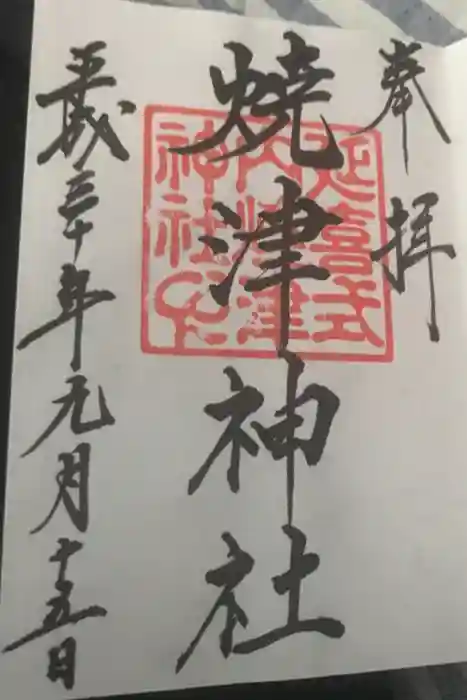 奉拝
焼津神社
延喜式
内焼津
神社之印
平成三十年元月十五日